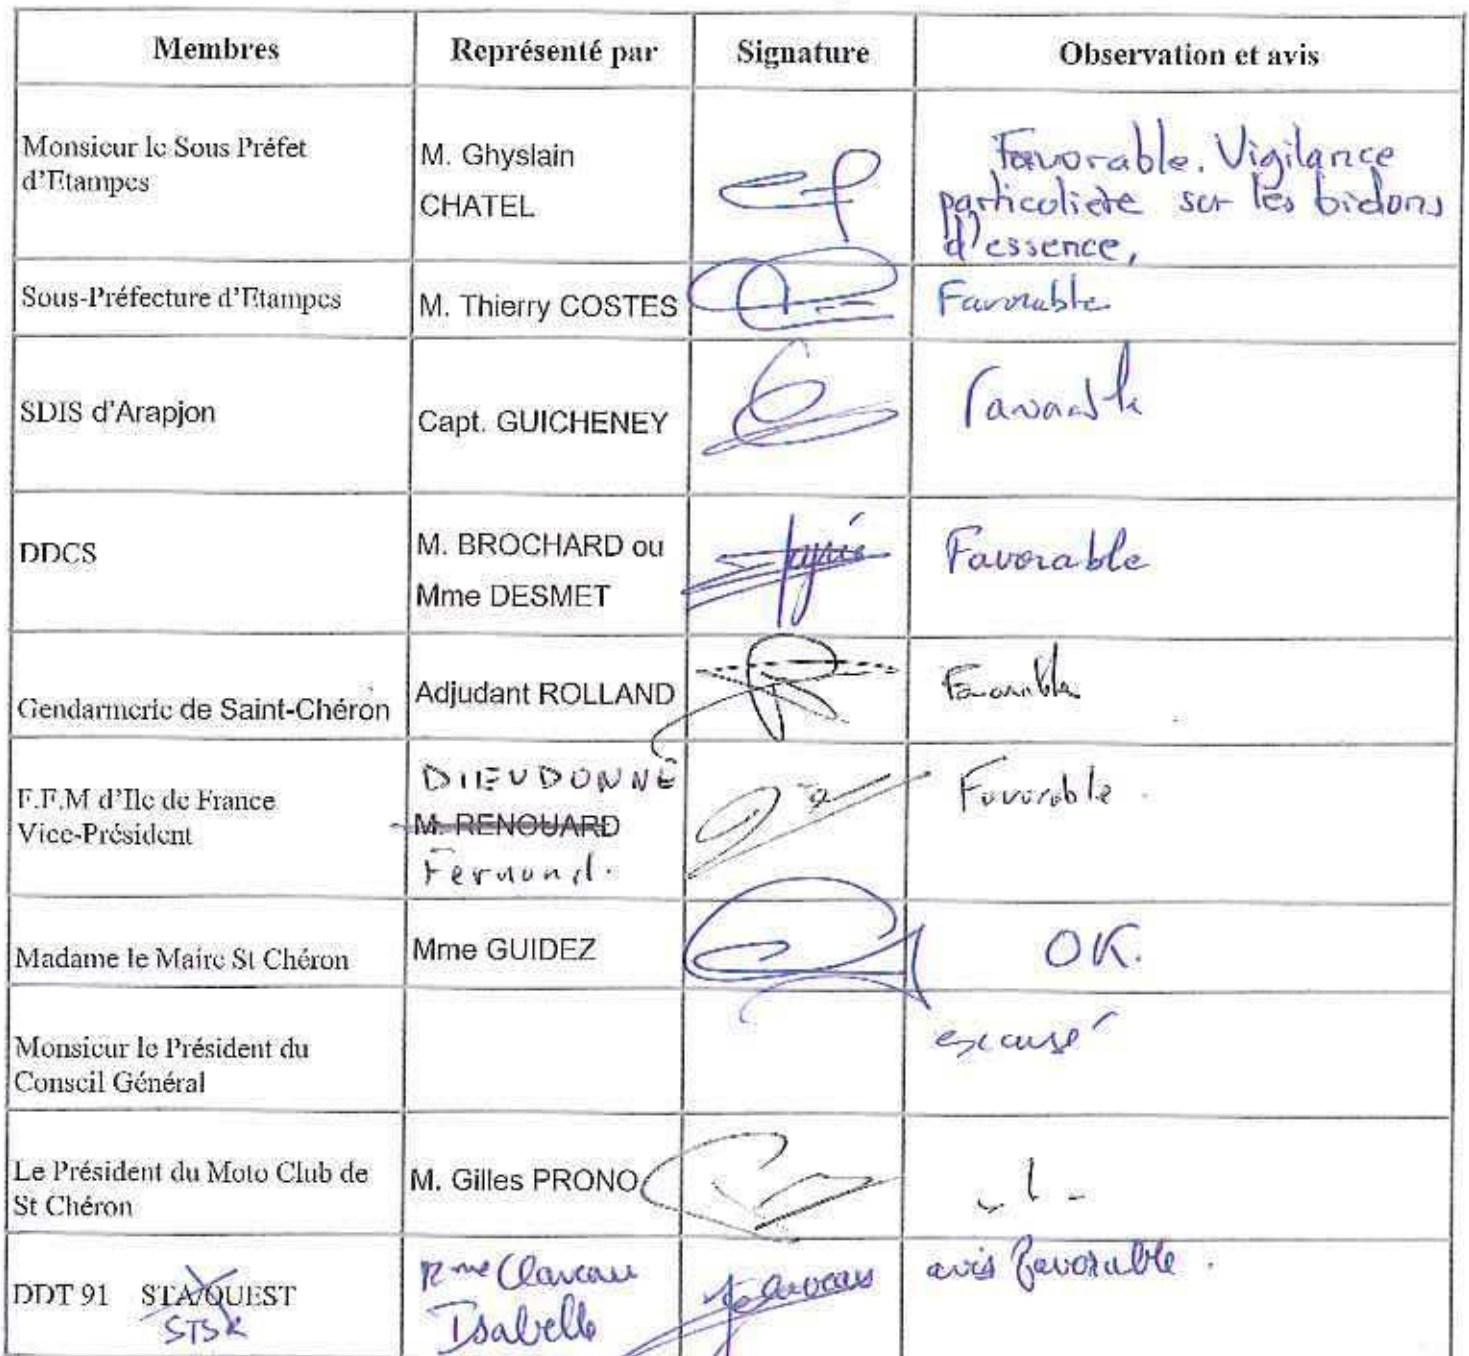 Membres Représenté par Signature Observation et avis
Monsieur le Sous Préfet
d'Etampes
M. Ghyslain
CHATEL
Favorable. Vigilance
particulière sur les bidons
d'essence,
Sous-Préfecture d'Etampes M. Thierry COSTES Favorable
SDIS d'Arapjon Capt. GUICHENEY Favorable
DDCS
M. BROCHARD ou
Mme DESMET
Favorable
Gendarmerie de Saint-Chéron Adjudant ROLLAND Favorable
F.F.M d'Ile de France
Vice-Président
DIEUDONNÉ
M. RENOUARD
Fernand.
Favorable.
Madame le Maire St Chéron Mme GUIDEZ OK.
Monsieur le Président du
Conseil Général
excusé
Le Président du Moto Club de
St Chéron
M. Gilles PRONO
DDT 91 STA/OUEST
STSR
Mme Claveau
Isabelle
avis favorable.